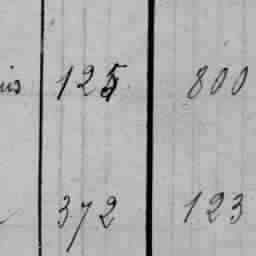 125 800
372 123